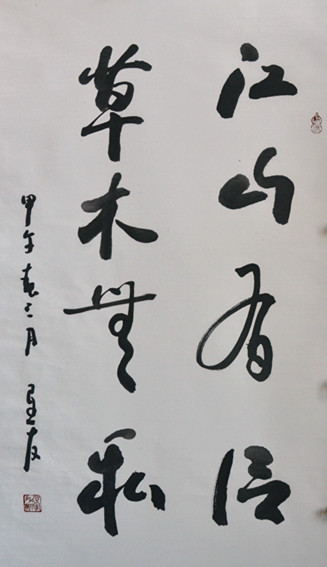 江山有信
草木無私
甲午春三月